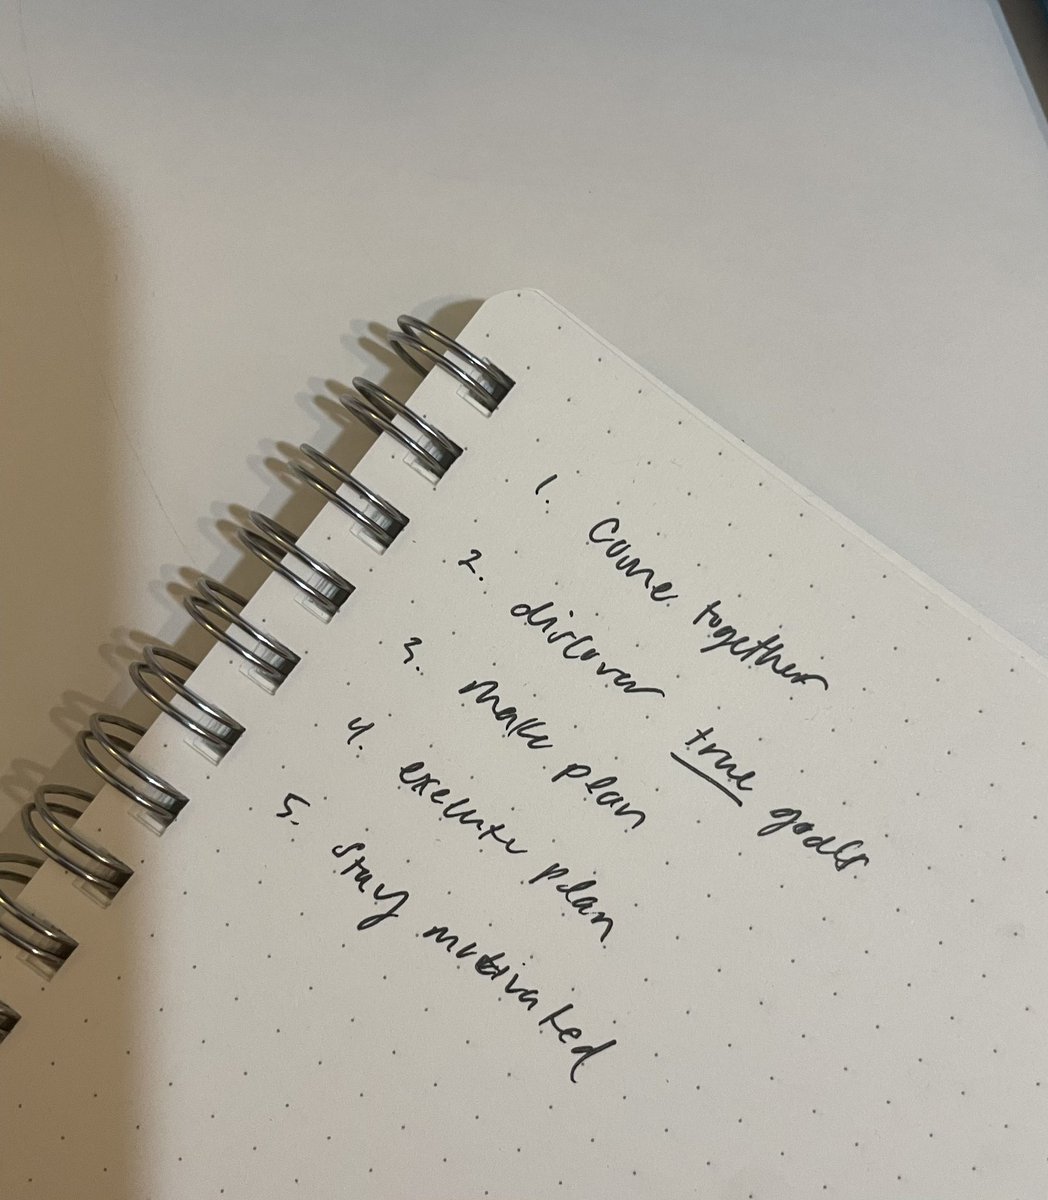 1. Come together
2. discover true goals
3. make plan
4. execute plan
5. stay motivated